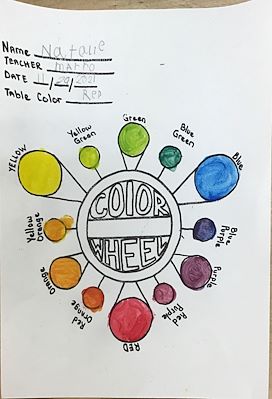 Name Natalie
TEACHER Marro
DATE 11/29/2021
Table Color Red
Green
Yellow
Green
Blue
Green
YELLOW
Blue
COLOR
WHEEL
Yellow
Orange
Blue
Purple
Orange
Purple
Red
Orange
Red
Purple
RED